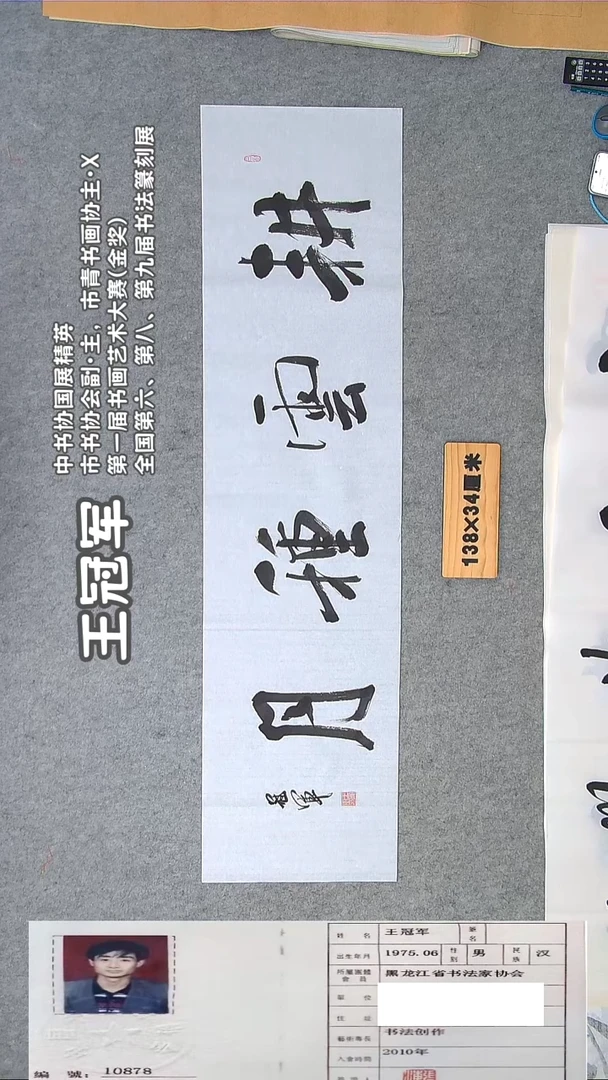 中书协国展精英
市书协会副·主，市青书画协主·X
第一届书画艺术大赛(金奖)
全国第六、第八、第九届书法篆刻展
王冠军
耕雲種月
冠軍
138×34厘米
姓名 王冠军 筆名
出生年月 1975.06 性别 男 民族 汉
所屬團體會員 黑龙江省书法家协会
單位
住址
藝術專長 书法创作
入會時間 2010年
編號：10878